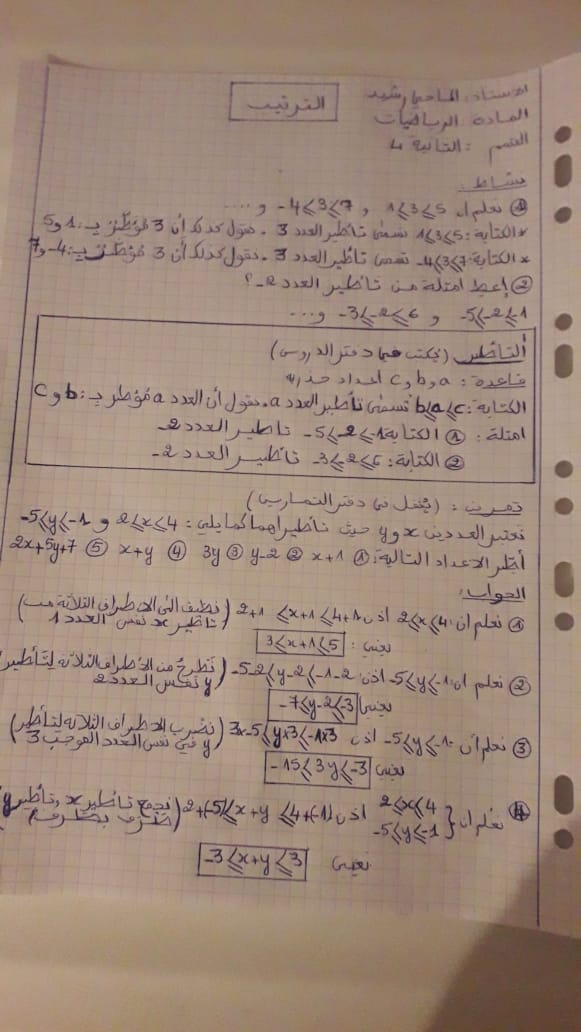 الاستاذ: الماحي رشيد
المادة: الرياضيات
القسم: الثانية 4
الترتيب
نشاط:
① نعلم أن 1≤3≤5 و -4≤3≤7 و ....
* الكتابة: 1≤3≤5 تسمى تأطير العدد 3. نقول كذلك أن 3 مؤطر بـ: 1 و 5
* الكتابة: -4≤3≤7 تسمى تأطير العدد 3. نقول كذلك أن 3 مؤطر بـ: -4 و 7
② إعط امثلة من تأطير العدد -2؟
-5≤-2≤-1 و -3≤-2≤6 و ...
التأطير (يكتب في دفتر الدروس)
قاعدة: a و b و c أعداد جذرية
الكتابة: b≤a≤c تسمى تأطير العدد a. نقول أن العدد a مؤطر بـ: b و c
امثلة: ① الكتابة -5≤-2≤-1 تأطير العدد -2
② الكتابة: -3≤-2≤6 تأطير العدد -2
تمرين: (ينقل في دفتر التمارين)
نعتبر العددين x و y حيث تأطيراهما كما يلي: 2≤x≤4 و -5≤y≤-1
أطر الاعداد التالية: ① x+1 ② y-2 ③ 3y ④ x+y ⑤ 2x+5y+7
الجواب:
① نعلم أن: 2≤x≤4 اذن 2+1≤x+1≤4+1 (نضيف الى الاطراف الثلاثة من تأطير x نفس العدد 1)
يعني: 3≤x+1≤5
② نعلم أن: -5≤y≤-1 اذن: -5-2≤y-2≤-1-2 (نطرح من الأطراف الثلاثة لتأطير y نفس العدد 2)
يعني -7≤y-2≤-3
③ نعلم أن -5≤y≤-1 اذن 3×-5≤y×3≤-1×3 (نضرب الاطراف الثلاثة لتأطير y في نفس العدد الموجب 3)
يعني -15≤3y≤-3
④ نعلم أن 2≤x≤4
-5≤y≤-1 } اذن 2+(-5)≤x+y≤4+(-1) (نجمع تأطير x وتأطير y طرف بطرف)
يعني -3≤x+y≤3